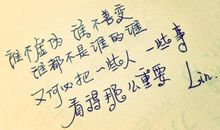 谁不虚伪 谁不善变
谁都不是谁的谁
又何必把一些人 一些事
看得那么重要 Lin